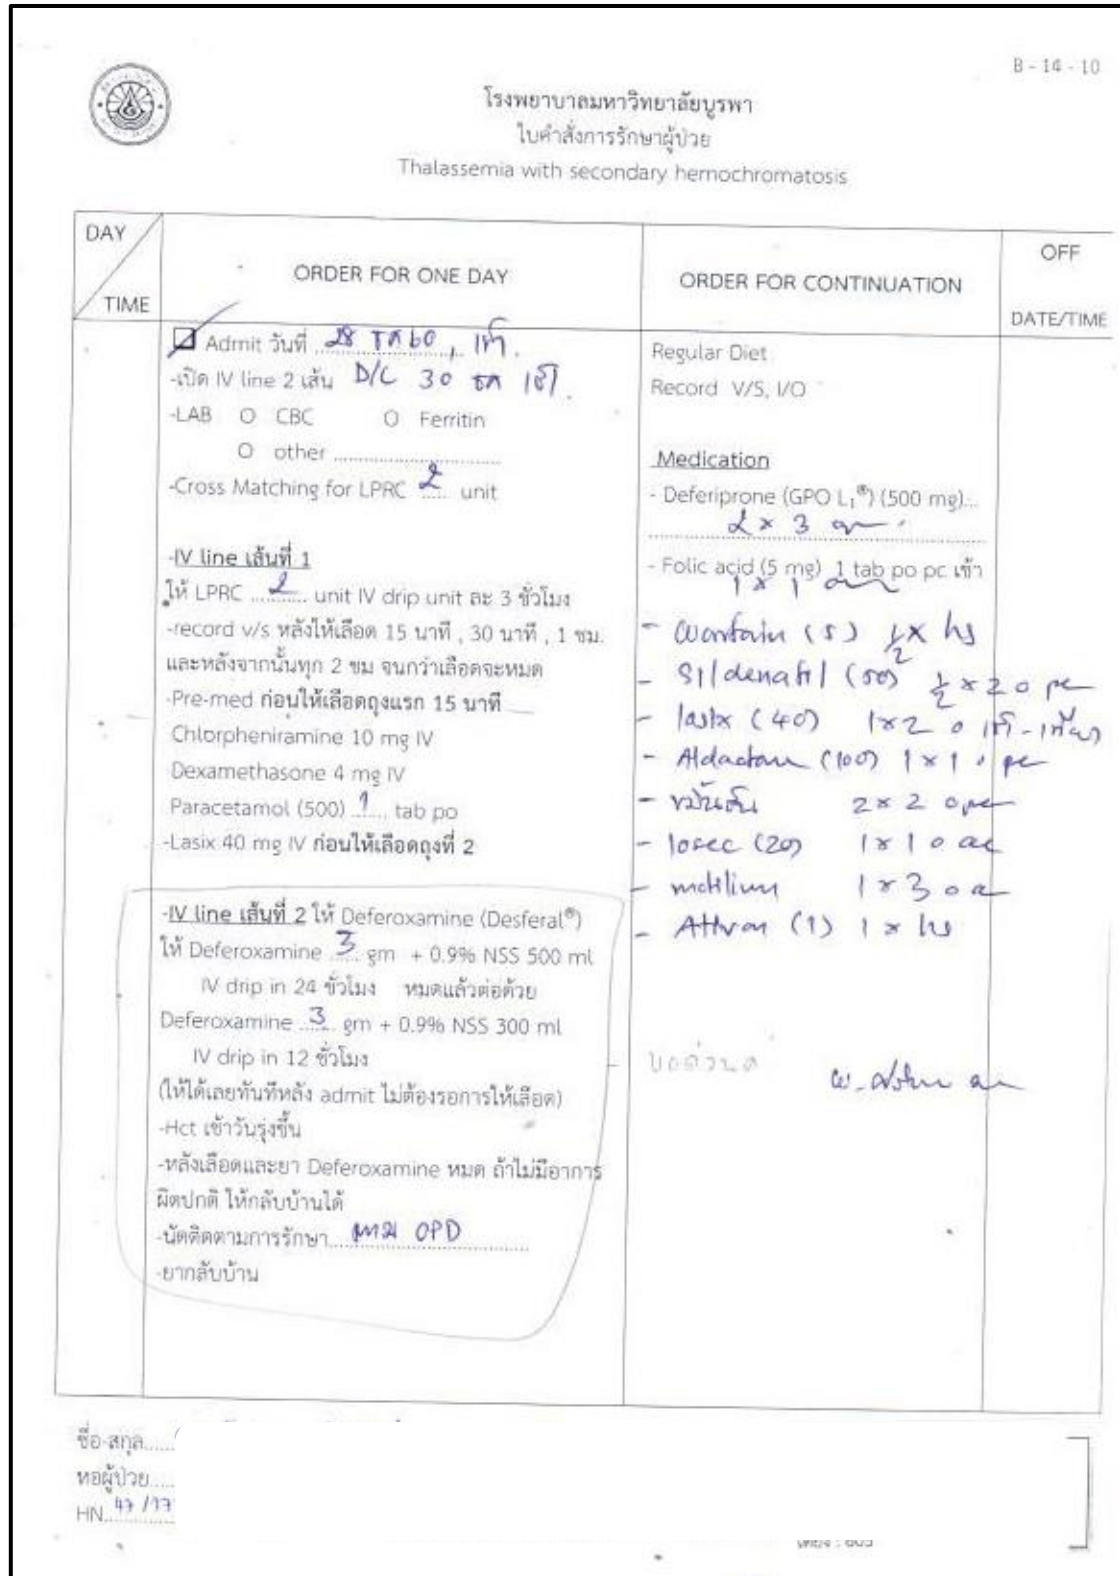 B - 14 - 10
โรงพยาบาลมหาวิทยาลัยบูรพา
ใบคำสั่งการรักษาผู้ป่วย
Thalassemia with secondary hemochromatosis
DAY
TIME
ORDER FOR ONE DAY
ORDER FOR CONTINUATION
OFF
DATE/TIME
Admit วันที่ 28 ธค 60, เช้า
-เปิด IV line 2 เส้น D/C 30 ธค เช้า
-LAB O CBC O Ferritin
O other
-Cross Matching for LPRC 2 unit
-IV line เส้นที่ 1
ให้ LPRC 2 unit IV drip unit ละ 3 ชั่วโมง
-record v/s หลังให้เลือด 15 นาที , 30 นาที , 1 ชม.
และหลังจากนั้นทุก 2 ชม จนกว่าเลือดจะหมด
-Pre-med ก่อนให้เลือดถุงแรก 15 นาที
Chlorpheniramine 10 mg IV
Dexamethasone 4 mg IV
Paracetamol (500) 1 tab po
-Lasix 40 mg IV ก่อนให้เลือดถุงที่ 2
-IV line เส้นที่ 2 ให้ Deferoxamine (Desferal®)
ให้ Deferoxamine 3 gm + 0.9% NSS 500 ml
IV drip in 24 ชั่วโมง หมดแล้วต่อด้วย
Deferoxamine 3 gm + 0.9% NSS 300 ml
IV drip in 12 ชั่วโมง
(ให้ได้เลยทันทีหลัง admit ไม่ต้องรอการให้เลือด)
-Hct เช้าวันรุ่งขึ้น
-หลังเลือดและยา Deferoxamine หมด ถ้าไม่มีอาการ
ผิดปกติ ให้กลับบ้านได้
-นัดติดตามการรักษา ตาม OPD
-ยากลับบ้าน
Regular Diet
Record V/S, I/O
Medication
- Deferiprone (GPO L1®) (500 mg)...
2 x 3
- Folic acid (5 mg) 1 tab po pc เช้า
1 x 1
- (5) 1/2 x hs
- Sildenafil (50) 1/2 x 2 o pc
- lasix (40) 1x2 o เช้า-เที่ยง
- Aldactone (100) 1 x 1 o pc
- ขมิ้นชัน 2 x 2 o pc
- losec (20) 1 x 1 o ac
- motilium 1 x 3 o ac
- Ativan (1) 1 x hs
ชื่อ-สกุล
หอผู้ป่วย
HN. 47 /17